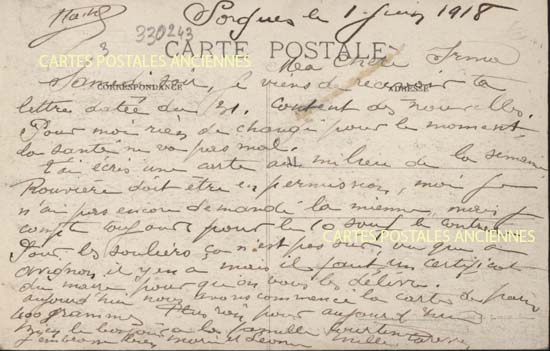 Sorgues le 1 Juin 1918
330243
3
CARTE POSTALE
CARTES POSTALES ANCIENNES
Ma chère Irma
CORRESPONDANCE
ADRESSE
Samedi soir, je viens de recevoir ta
lettre datée du 31. Content des nouvelles.
Pour moi rien de changé pour le moment
la santé ne va pas mal.
T'ai écris une carte au milieu de la semaine
Rouvière doit être en permission, moi je
n'ai pas encore demandé la mienne, mais je
compt toujours pour le 10 sauf
CARTES POSTALES ANCIENNES
Pour les souliers, ça n'est pas
Avignon, il y en a mais il faut un certificat
du maire pour qu'on vous les délivre.
aujourd'hui nous avons commencé la carte de pain
400 grammes. Plus rien pour aujourd'hui
bien le bonjour à la famille